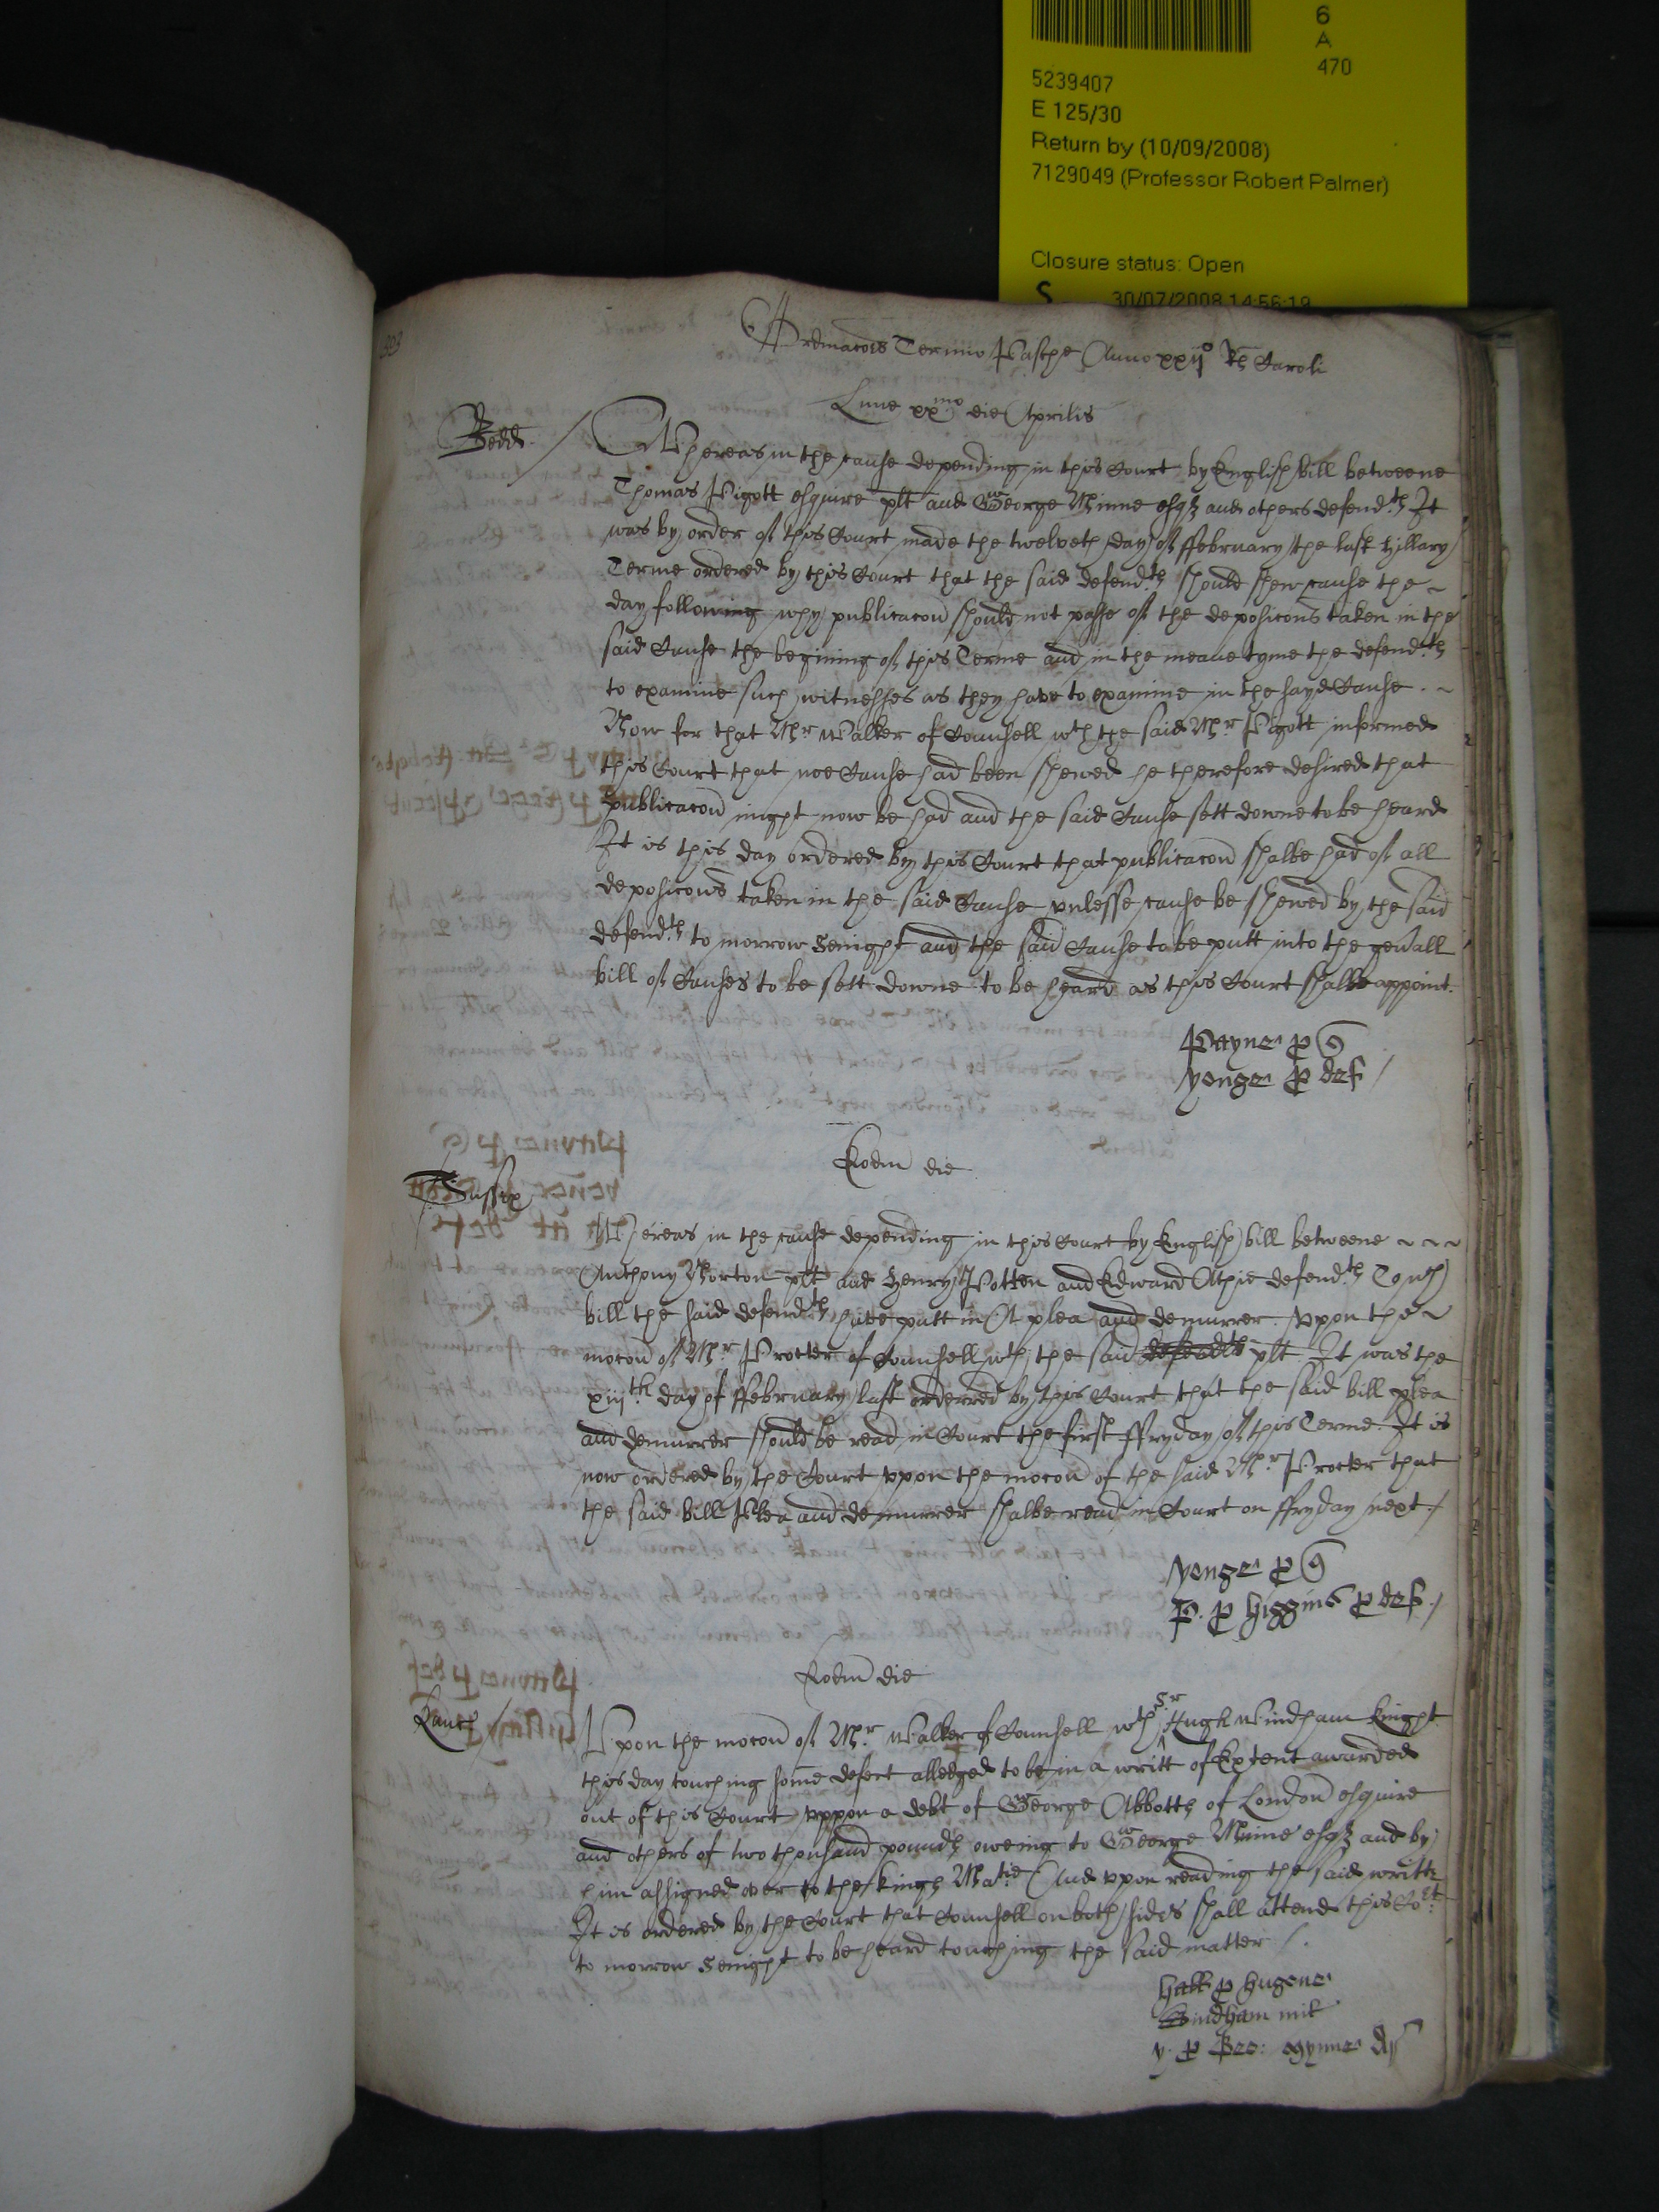 6
A
470
5239407
E 125/30
Return by (10/09/2008)
7129049 (Professor Robert Palmer)
Closure status: Open
S 30/07/2008 14:56:19
Ordinacoēs Termino Pasche Anno xxijo Rs Caroli
Lune xxmo die Aprilis
Bedd
Whereas in the cause depending in this Court by English bill betweene
Thomas Pigott esquire plt and George Minne esqz and others defendts It
was by order of this Court made the twelveth day of ffebruary the last Hillary
Terme ordered by this Court that the said defendts should shew cause the
day following why publicacon should not passe of the deposicons taken in the
said Cause the begining of this Terme and in the meane tyme the defendts
to examine such witnesses as they have to examine in the sayd Cause.
Now for that Mr Walker of Counsell wth the said Mr Pigott informed
this Court that noe Cause had been shewed he therefore desired that
publicacon might now be had and the said Cause sett downe to be heard
It is this day ordered by this Court that publicacon shalbe had of all
deposicons taken in the said Cause unlesse cause be shewed by the said
defendts to morrow Senight and the said Cause to be putt into the genall
bill of Causes to be sett downe to be heard as this Court shalbe appoint.
Payne p Q
Yonge p def
Eodm die
Sussex
Whereas in the cause depending in this Court by English bill betweene
Anthony Norton plt and Henry Potten and Edward Athie defendts To wch
bill the said defendts have putt in A plea and demurrer. Vpon the
mocon of Mr Procter of Counsell wth the said defendts plt It was the
xiijth day of ffebruary last orderred by this Court that the said bill plea
and demurrer should be read in Court the first ffryday of this Terme. It is
now ordered by the Court vpon the mocon of the said Mr Procter that
the said bill Plea and demurrer shalbe read in Court on ffryday next
Yonge p Q
P. p Higgins p def.
Eodm die
Vpon the mocon of Mr Walker of Counsell wth Sr Hugh Windham knight
this day touching some defect alledged to be in a writt of Extent awarded
out of this Court vppon a debt of George Abbotts of London esquire
and others of two thousand pounds oweing to George Minne esqz and by
him assigned over to the kings Matie And vpon reading the said writt
It is ordered by the Court that Counsell on both sides shall attend this Cort
to morrow Senight to be heard touching the said matter
Hall p Hugone
Windham mil
y. p Geo: Mynne Ar